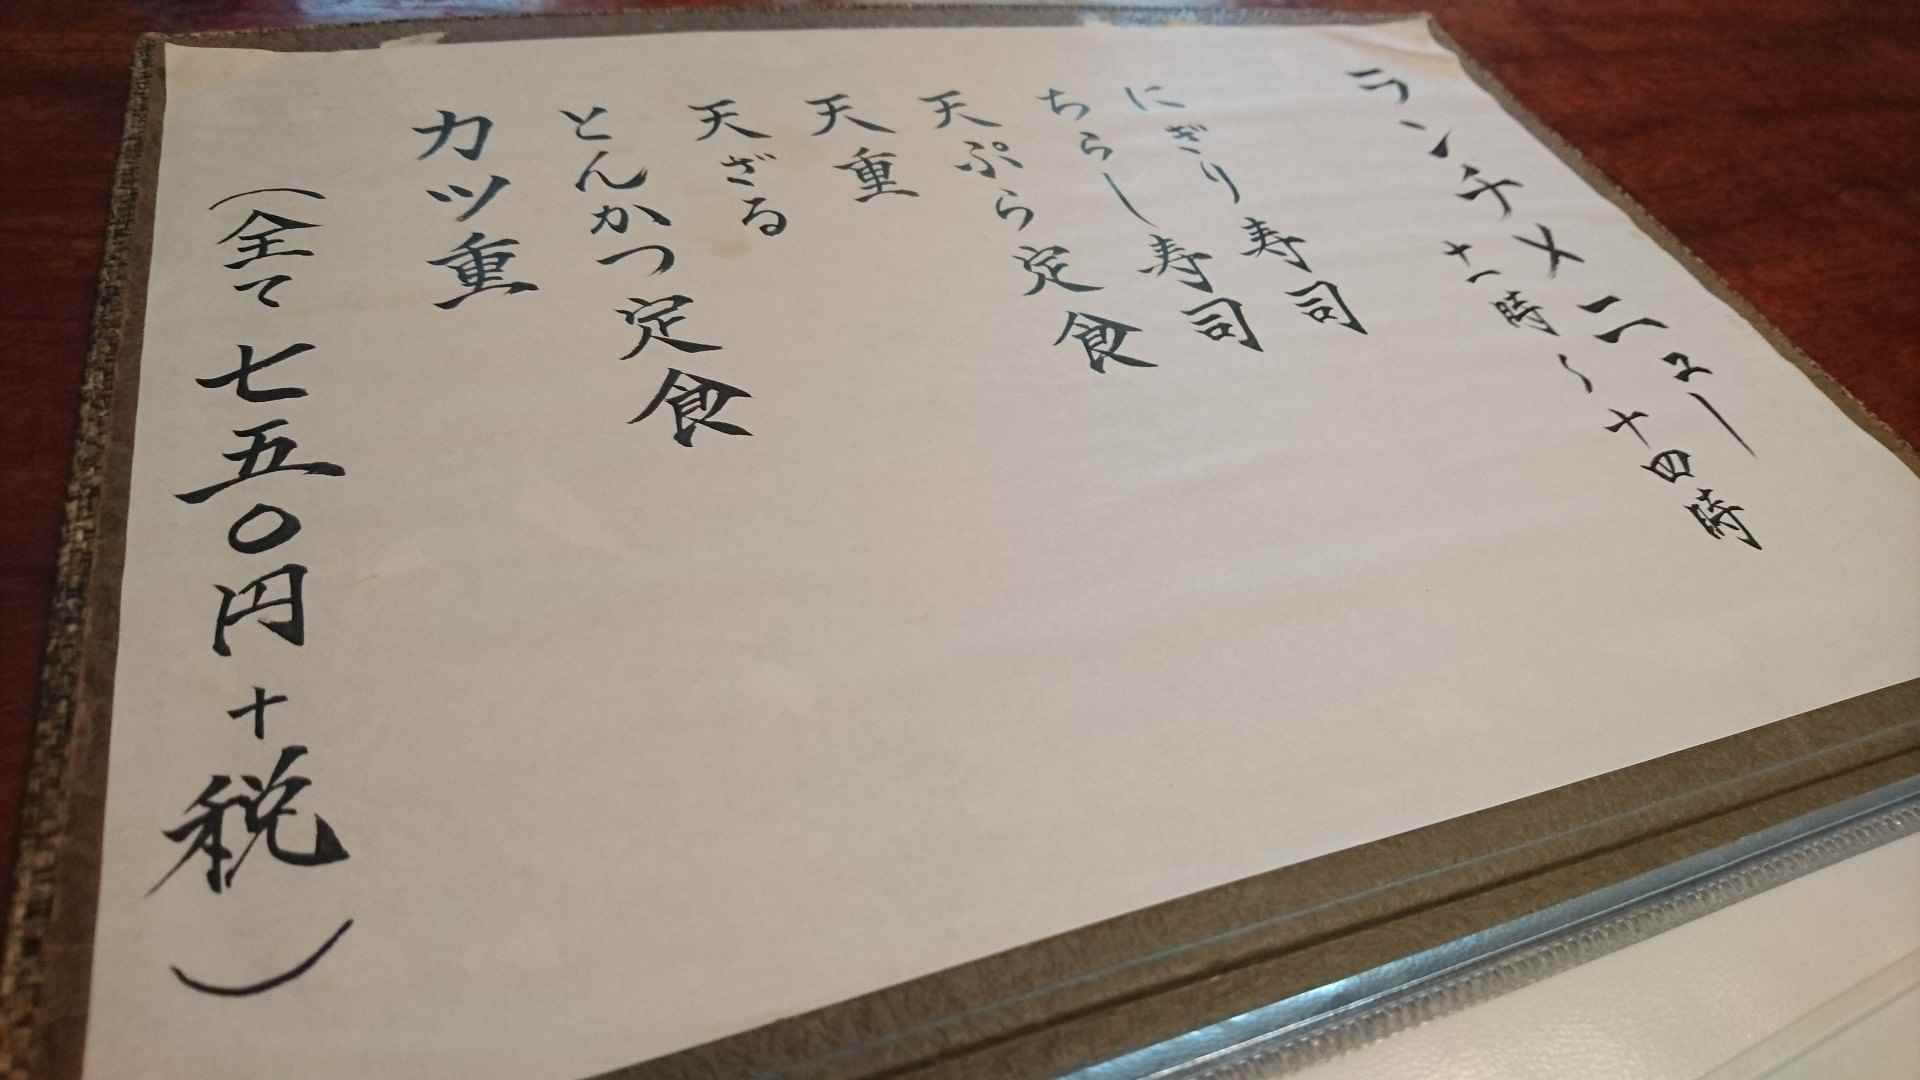 ランチメニュー
十一時〜十四時
にぎり寿司
ちらし寿司
天ぷら定食
天重
天ざる
とんかつ定食
カツ重
(全て七五〇円+税)